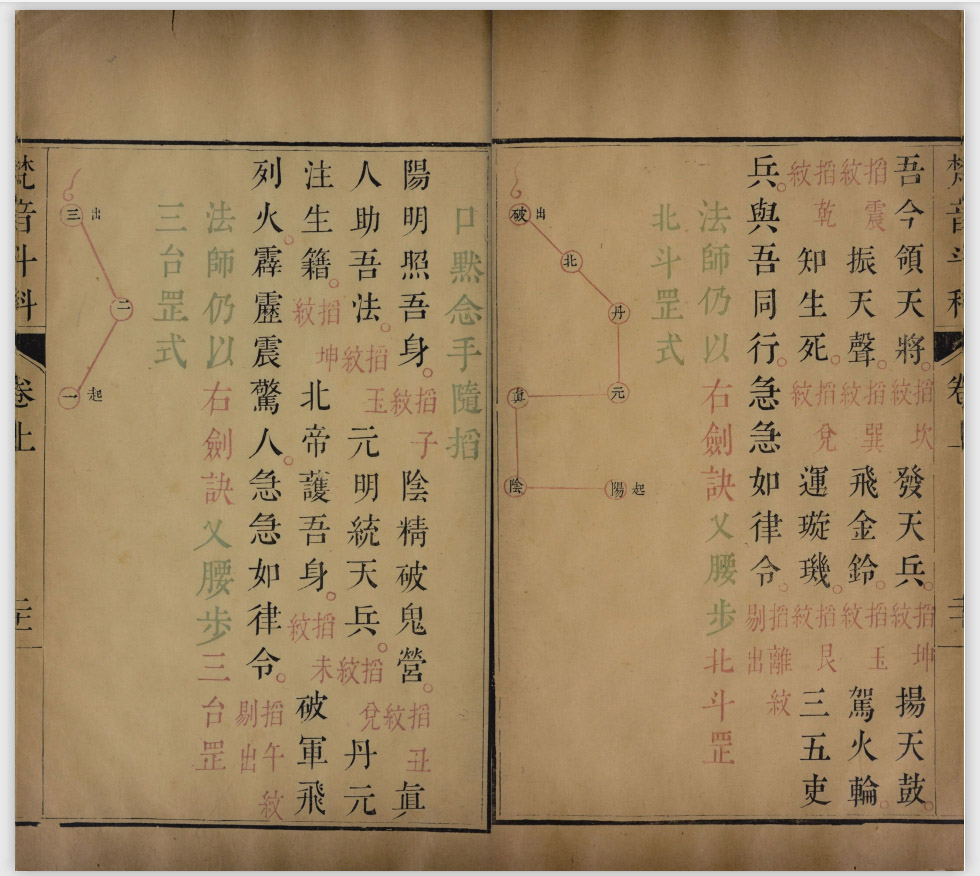 梵音斗科 卷上
吾今領天將。掐坎紋發天兵。掐坤紋揚天鼓。
掐震紋振天聲。掐巽紋飛金鈴。掐玉紋駕火輪。
掐乾紋知生死。掐兌紋運璇璣。掐艮紋三五吏
兵。與吾同行。急急如律令。掐離紋剔出
法師仍以右劍訣又腰步北斗罡
北斗罡式
破 出
北
丹
元
眞
陰
陽 起
口黙念手隨掐
陽明照吾身。掐子紋陰精破鬼營。掐丑紋眞
人助吾法。掐玉紋元明統天兵。掐兌紋丹元
注生籍。掐坤紋北帝護吾身。掐未紋破軍飛
列火。霹靂震驚人。急急如律令。掐午紋剔出
法師仍以右劍訣又腰步三台罡
三台罡式
三 出
二
一 起
梵音斗科 卷上